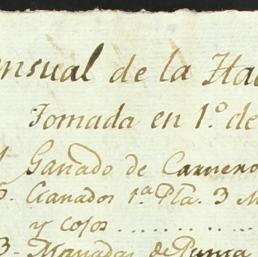 ensual de la Hac
Tomada en 1.º de
Ganado de Carnero
Ganados 1.ª Pla. 3 M
y cojos ..........
3 - Manadas de Punta